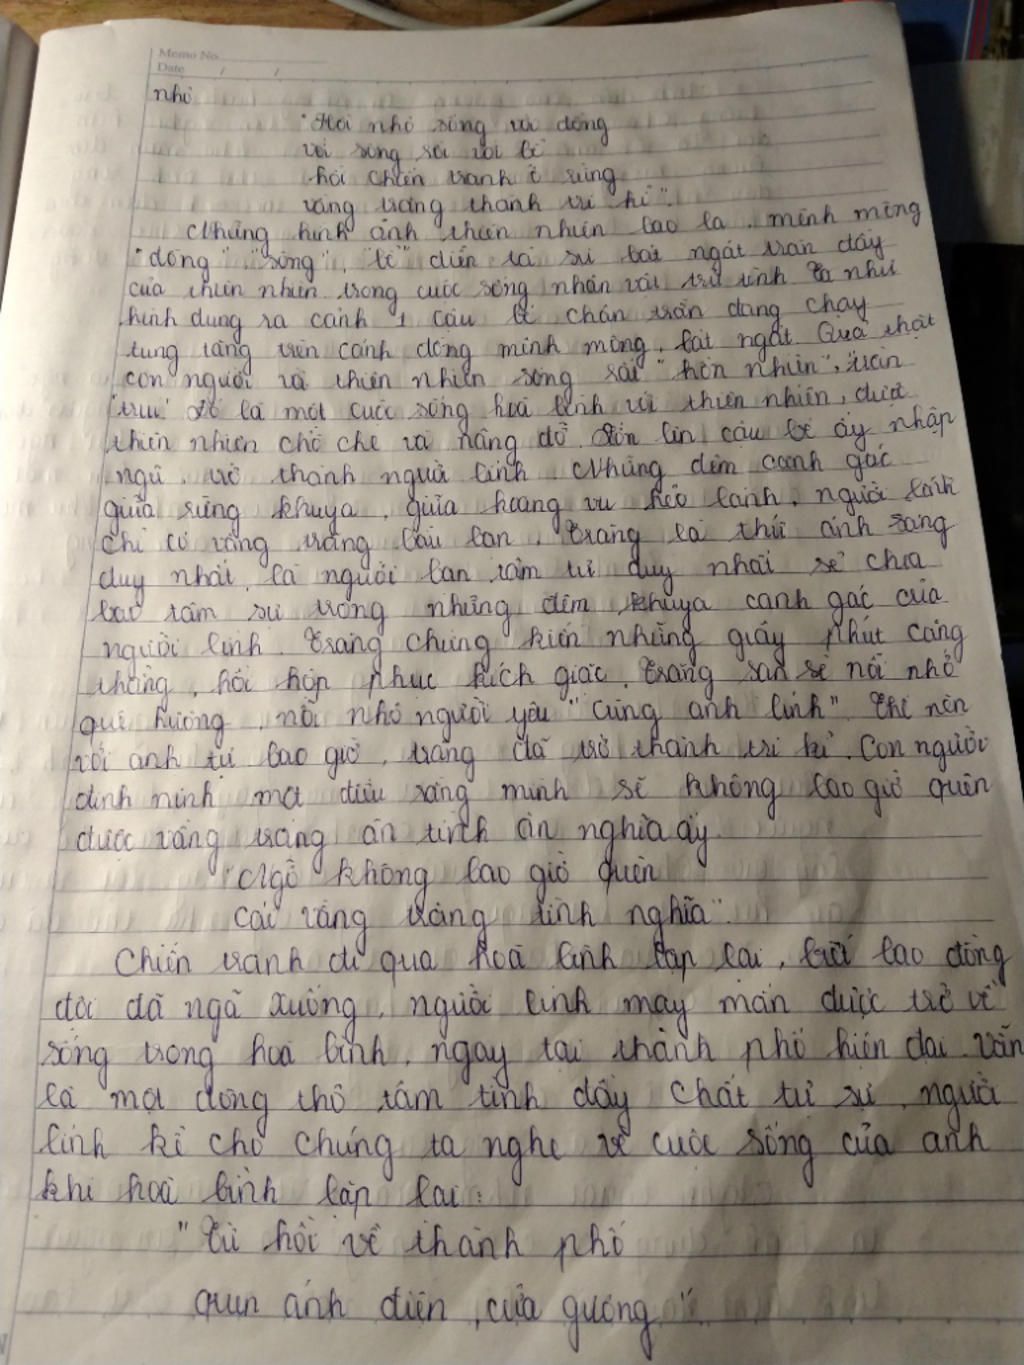 Memo No.
Date / /
nhỏ
"Hồi nhỏ sống với đồng
với sông rồi với bể
hồi chiến tranh ở rừng
vầng trăng thành tri kỉ".
Những hình ảnh thiên nhiên bao la, mênh mông
"đồng", "sông", "bể" diễn tả sự bát ngát tràn đầy
của thiên nhiên trong cuộc sống nhân vật trữ tình. Ta như
hình dung ra cảnh 1 cậu bé chân trần đang chạy
tung tăng trên cánh đồng mênh mông, bát ngát. Quả thật
con người và thiên nhiên sống rất "hồn nhiên", "trần
trụi". Đó là một cuộc sống hoà bình với thiên nhiên, được
thiên nhiên chở che và nâng đỡ. Lớn lên, cậu bé ấy nhập
ngũ, trở thành người lính. Những đêm canh gác
giữa rừng khuya, giữa hoang vu lạnh, người lính
chỉ có vầng trăng bầu bạn. Trăng là thứ ánh sáng
duy nhất, là người bạn tâm tư duy nhất sẻ chia
bao tâm sự trong những đêm khuya canh gác của
người lính. Trăng chứng kiến những giây phút căng
thẳng, hồi hộp phục kích giặc. Trăng san sẻ nỗi nhớ
quê hương, nỗi nhớ người yêu "cùng anh lính". Thế nên
với anh tự bao giờ, trăng đã trở thành tri kỉ. Con người
đinh ninh một điều rằng mình sẽ không bao giờ quên
được vầng trăng ân tình ân nghĩa ấy
"Ngỡ không bao giờ quên
cái vầng trăng tình nghĩa".
Chiến tranh đi qua hoà bình lập lại, bao đồng
đội đã ngã xuống, người lính may mắn được trở về
sống trong hoà bình, ngay tại thành phố hiện đại. Vẫn
là một dòng thơ tâm tình đầy chất tự sự, người
lính kể cho chúng ta nghe về cuộc sống của anh
khi hoà bình lập lại:
"Từ hồi về thành phố
quen ánh điện, cửa gương"